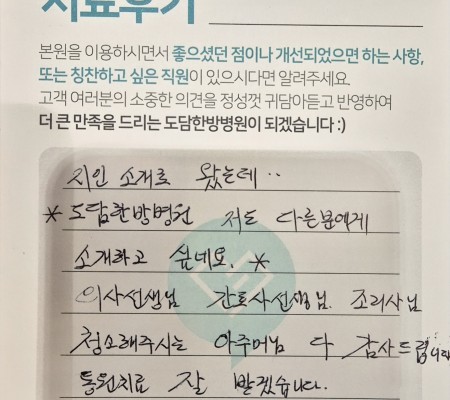 치료후기
본원을 이용하시면서 좋으셨던 점이나 개선되었으면 하는 사항,
또는 칭찬하고 싶은 직원이 있으시다면 알려주세요.
고객 여러분의 소중한 의견을 정성껏 귀담아듣고 반영하여
더 큰 만족을 드리는 도담한방병원이 되겠습니다 :)
지인 소개로 왔는데..
* 도담한방병원 저도 다른분에게
소개하고 싶네요. *
의사선생님 간호사선생님. 조리사님
청소해주시는 아주머님 다 감사드립니다
통원치료 잘 받겠습니다.